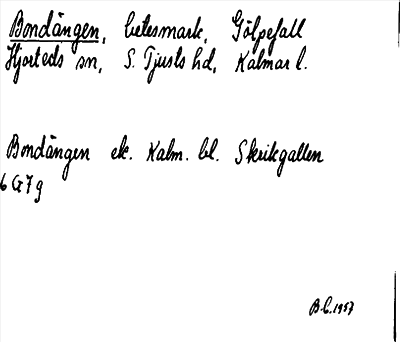 Bondängen, betesmark, Gölpefall
Hjorteds sn, S. Tjusts hd, Kalmar l.
Bondängen ek. Kalm. bl. Skrikgallen
6 G 7 g
B.L. 1957